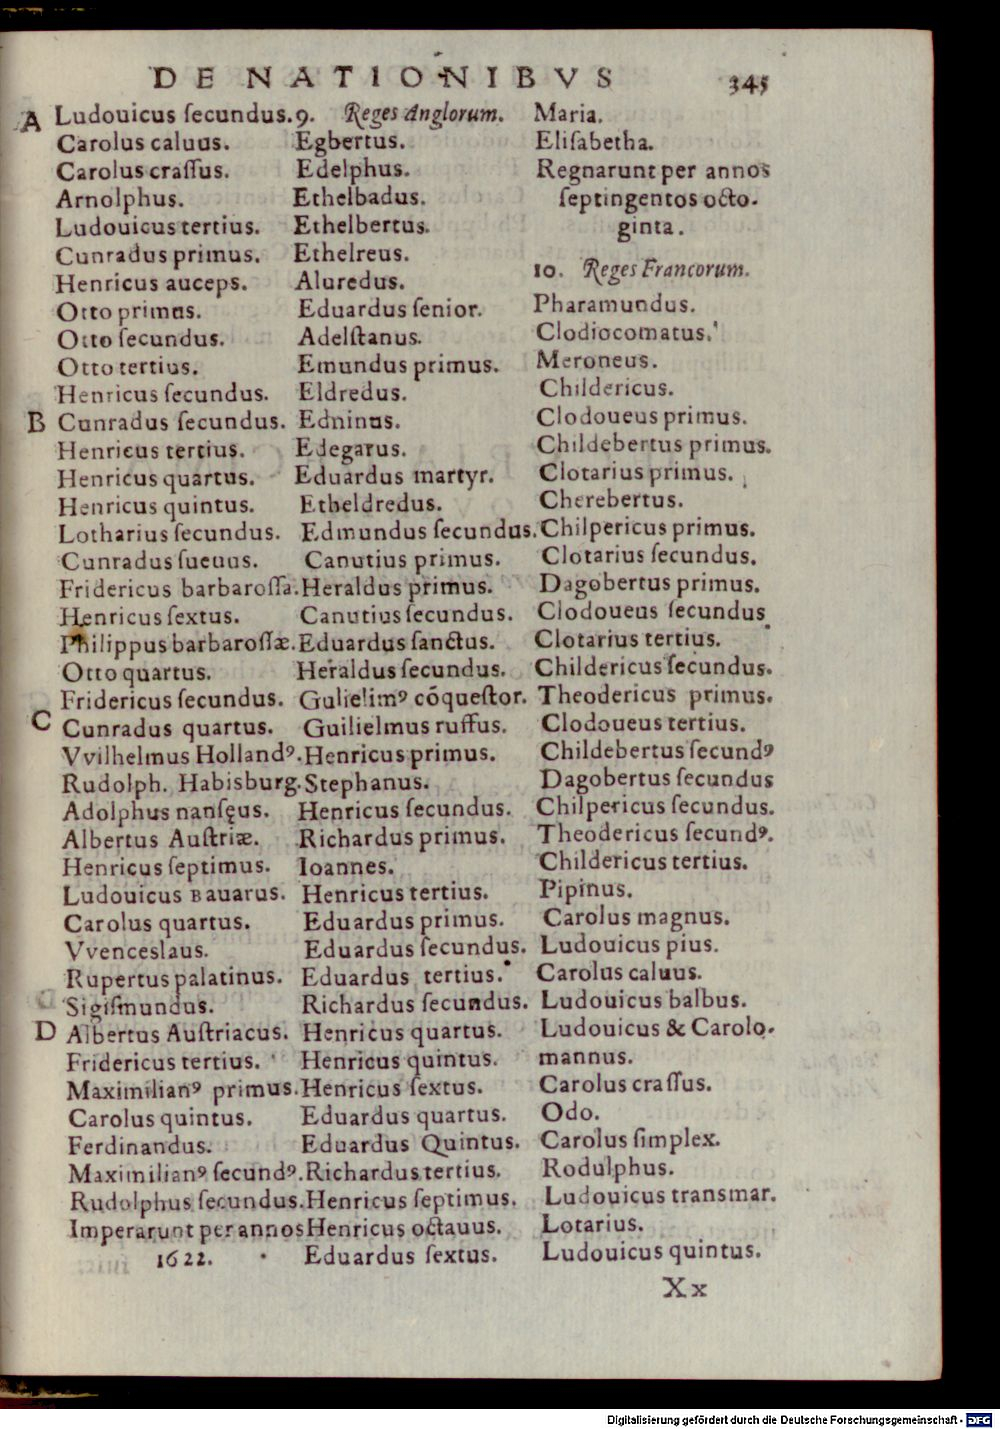 DE NATIONIBVS 345
A Ludouicus ſecundus.
Carolus caluus.
Carolus craſſus.
Arnolphus.
Ludouicus tertius.
Cunradus primus.
Henricus auceps.
Otto primus.
Otto ſecundus.
Otto tertius.
Henricus ſecundus.
B Cunradus ſecundus.
Henricus tertius.
Henricus quartus.
Henricus quintus.
Lotharius ſecundus.
Cunradus ſueuus.
Fridericus barbaroſſa.
Henricus ſextus.
Philippus barbaroſſæ.
Otto quartus.
Fridericus ſecundus.
C Cunradus quartus.
Vvilhelmus Hollandꝰ.
Rudolph. Habisburg.
Adolphus nanſęus.
Albertus Auſtriæ.
Henricus ſeptimus.
Ludouicus Bauarus.
Carolus quartus.
Vvenceslaus.
Rupertus palatinus.
Sigiſmundus.
D Albertus Auſtriacus.
Fridericus tertius.
Maximilianꝰ primus.
Carolus quintus.
Ferdinandus.
Maximilianꝰ ſecundꝰ.
Rudolphus ſecundus.
Imperarunt per annos
1622.
9. Reges Anglorum.
Egbertus.
Edelphus.
Ethelbadus.
Ethelbertus.
Ethelreus.
Aluredus.
Eduardus ſenior.
Adelſtanus.
Emundus primus.
Eldredus.
Edninus.
Edegarus.
Eduardus martyr.
Etheldredus.
Edmundus ſecundus.
Canutius primus.
Heraldus primus.
Canutius ſecundus.
Eduardus ſanctus.
Heraldus ſecundus.
Gulielimꝰ cōqueſtor.
Guilielmus ruffus.
Henricus primus.
Stephanus.
Henricus ſecundus.
Richardus primus.
Ioannes.
Henricus tertius.
Eduardus primus.
Eduardus ſecundus.
Eduardus tertius.
Richardus ſecundus.
Henricus quartus.
Henricus quintus.
Henricus ſextus.
Eduardus quartus.
Eduardus Quintus.
Richardus tertius.
Henricus ſeptimus.
Henricus octauus.
Eduardus ſextus.
Maria.
Eliſabetha.
Regnarunt per annos
ſeptingentos octo-
ginta.
10. Reges Francorum.
Pharamundus.
Clodiocomatus.
Meroneus.
Childericus.
Clodoueus primus.
Childebertus primus.
Clotarius primus.
Cherebertus.
Chilpericus primus.
Clotarius ſecundus.
Dagobertus primus.
Clodoueus ſecundus.
Clotarius tertius.
Childericus ſecundus.
Theodericus primus.
Clodoueus tertius.
Childebertus ſecundꝰ
Dagobertus ſecundus
Chilpericus ſecundus.
Theodericus ſecundꝰ.
Childericus tertius.
Pipinus.
Carolus magnus.
Ludouicus pius.
Carolus caluus.
Ludouicus balbus.
Ludouicus & Carolo-
mannus.
Carolus craſſus.
Odo.
Carolus ſimplex.
Rodulphus.
Ludouicus transmar.
Lotarius.
Ludouicus quintus.
Xx
Digitalisierung gefördert durch die Deutsche Forschungsgemeinschaft - DFG